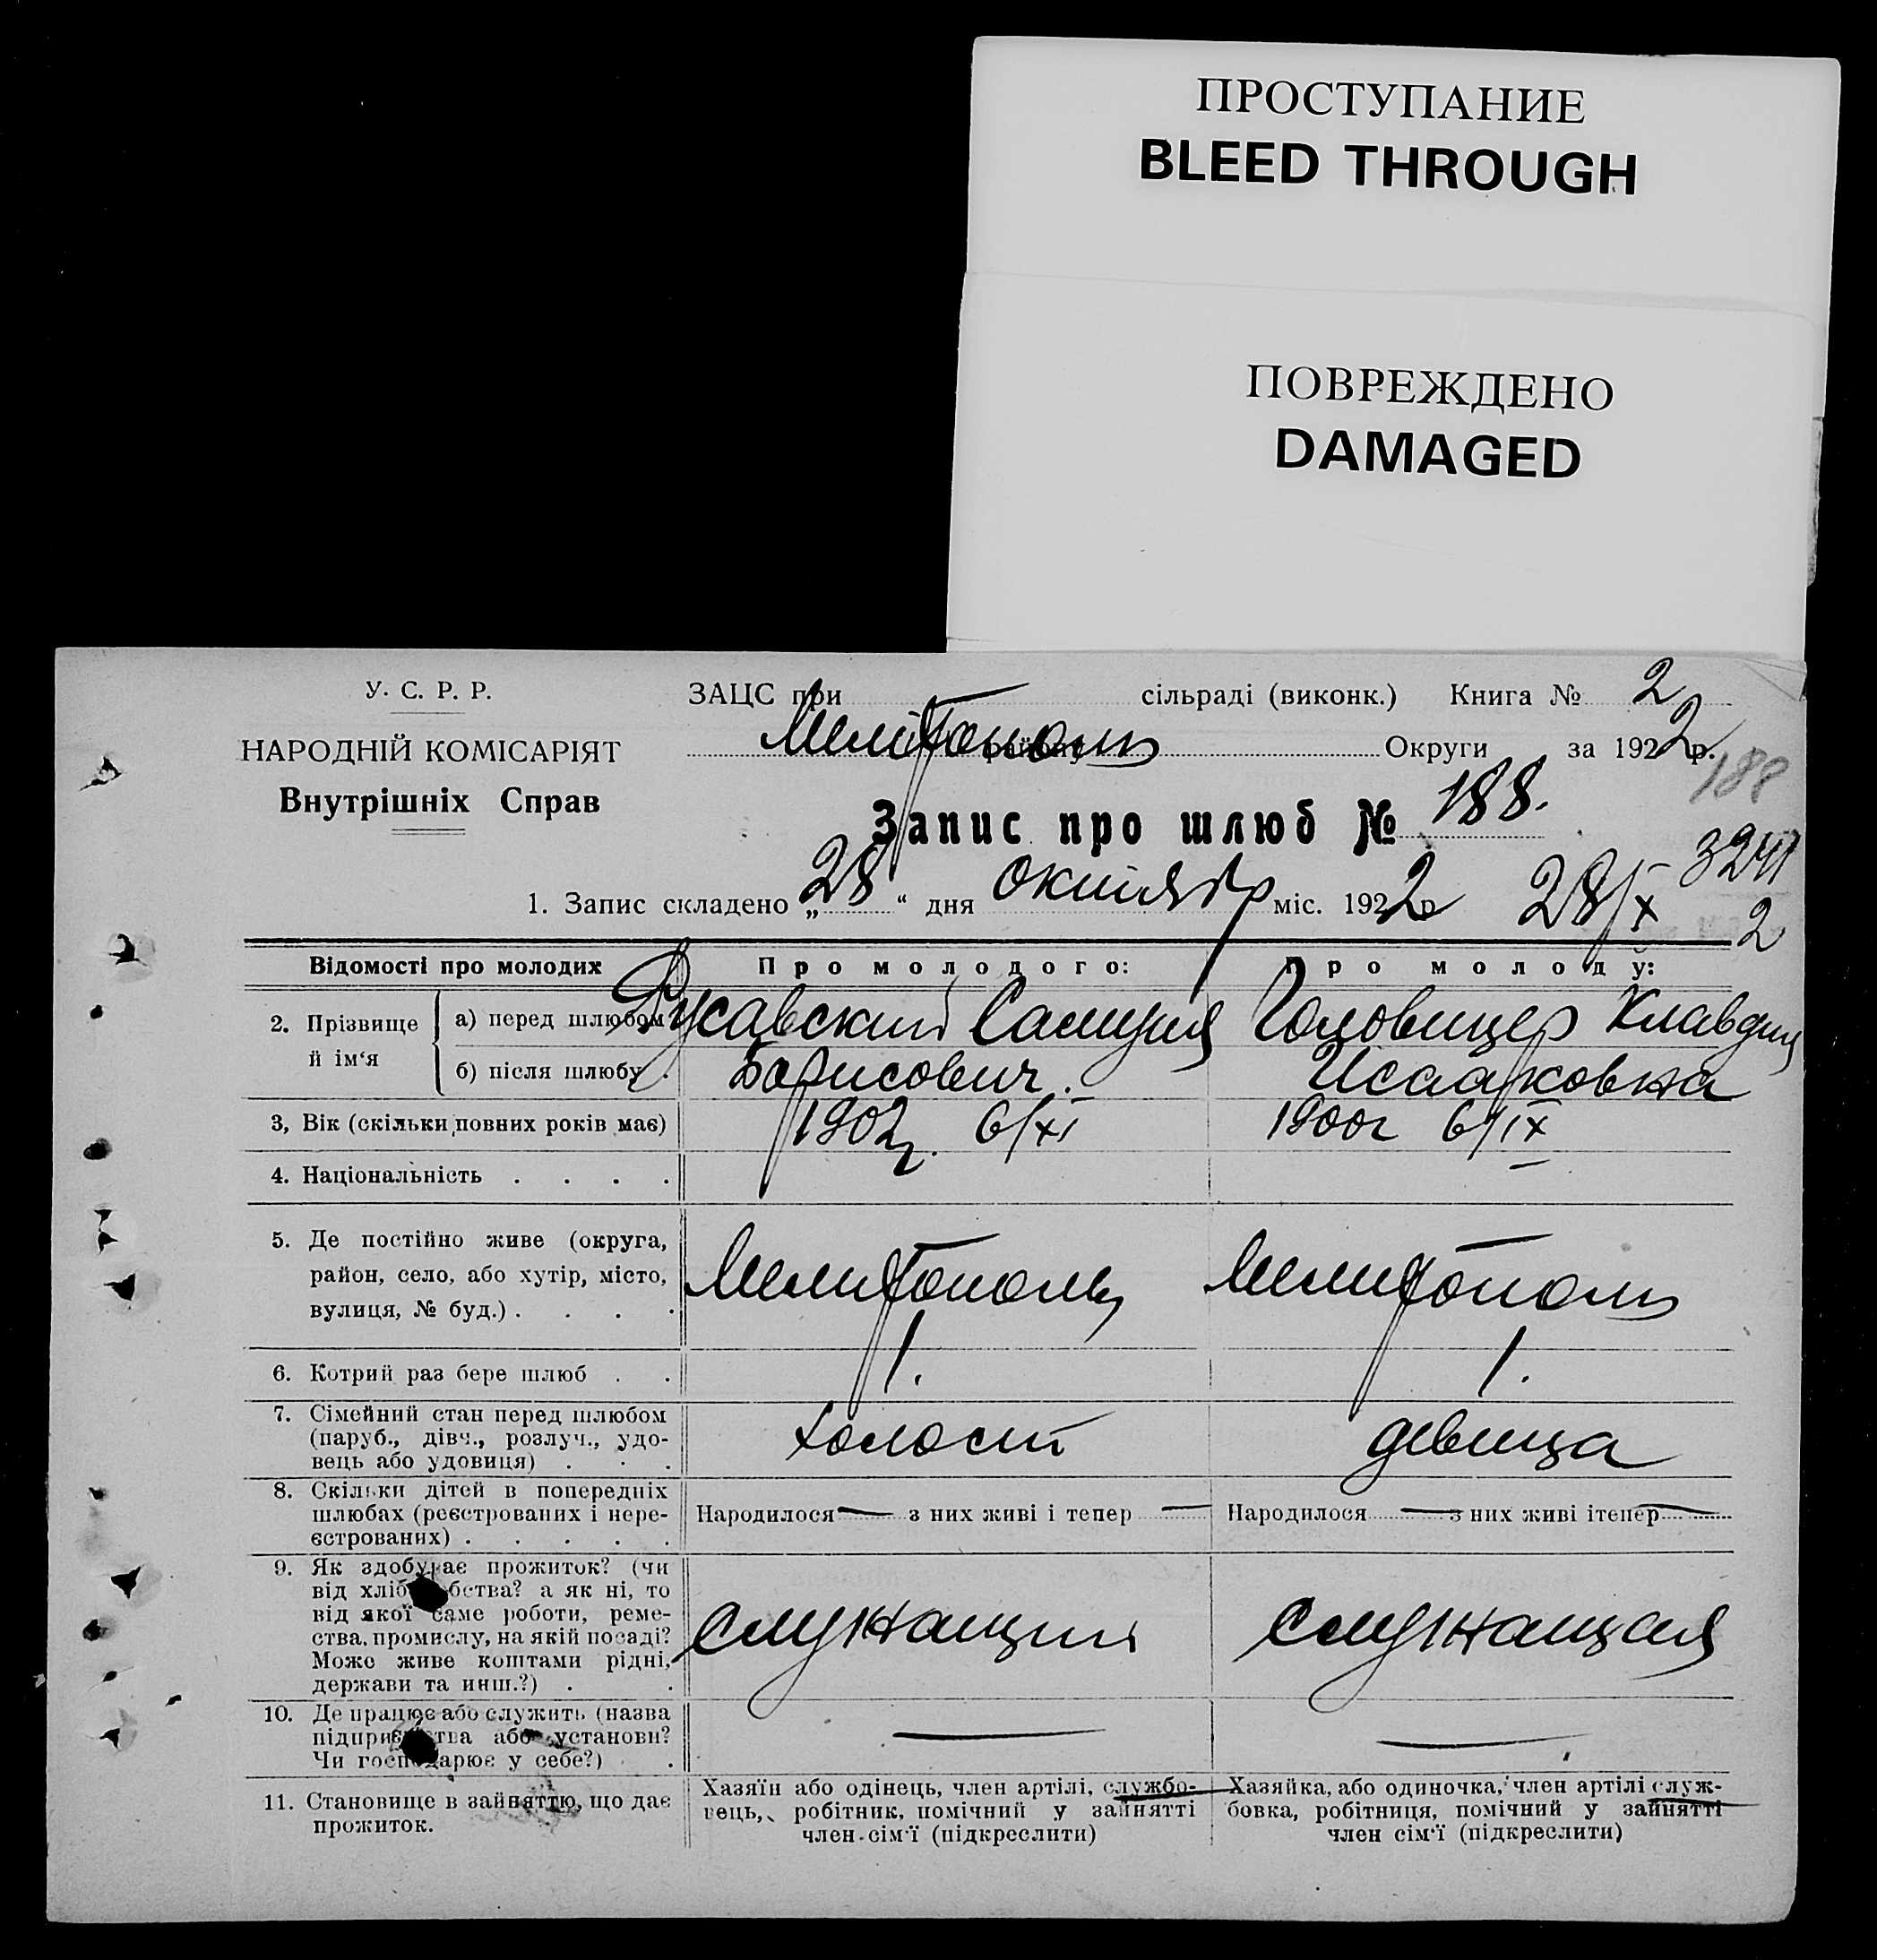 ПРОСТУПАНИЕ
BLEED THROUGH
ПОВРЕЖДЕНО
DAMAGED
У. С. Р. Р.
НАРОДНІЙ КОМІСАРІЯТ
Внутрішніх Справ
ЗАЦС при сільраді (виконк.) Книга № 2
Мелітополь району Округи за 1922 р.
188
Запис про шлюб № 188.
3241
1. Запис складено „28“ дня октября міс. 1922 р 28/X
2
Відомості про молодих
Про молодого:
Про молоду:
2. Прізвище й ім‘я
а) перед шлюбом
б) після шлюбу .
Русавский Самуил
Борисович.
Головицер Клавдия
Исааковна
3, Вік (скільки повних років має)
1902г. 6/XI
1900г 6/IX
4. Національність . . . .
5. Де постійно живе (округа,
район, село, або хутір, місто,
вулиця, № буд.) . . . .
Мелитополь
Мелитополь
6. Котрий раз бере шлюб . .
1.
1.
7. Сімейний стан перед шлюбом
(паруб., дівч., розлуч., удо-
вець або удовиця) . . .
холост
девица
8. Скільки дітей в попередніх
шлюбах (реєстрованих і нере-
єстрованих) . . . . .
Народилося — з них живі і тепер —
Народилося — з них живі ітепер —
9. Як здобуває прожиток? (чи
від хліб бства? а як ні, то
від якої саме роботи, реме-
ства, промислу, на якій посаді?
Може живе коштами рідні,
держави та инш.?) . .
Служащий
Служащая
10. Де працює або служить (назва
підприємства або установи?
Чи господарює у себе?) .
—
—
11. Становище в зайняттю, що дає
прожиток.
Хазяїн або одінець, член артілі, службо-
вець, робітник, помічний у зайнятті
член сім‘ї (підкреслити)
Хазяйка, або одиночка, член артілі служ-
бовка, робітниця, помічний у зайнятті
член сім‘ї (підкреслити)